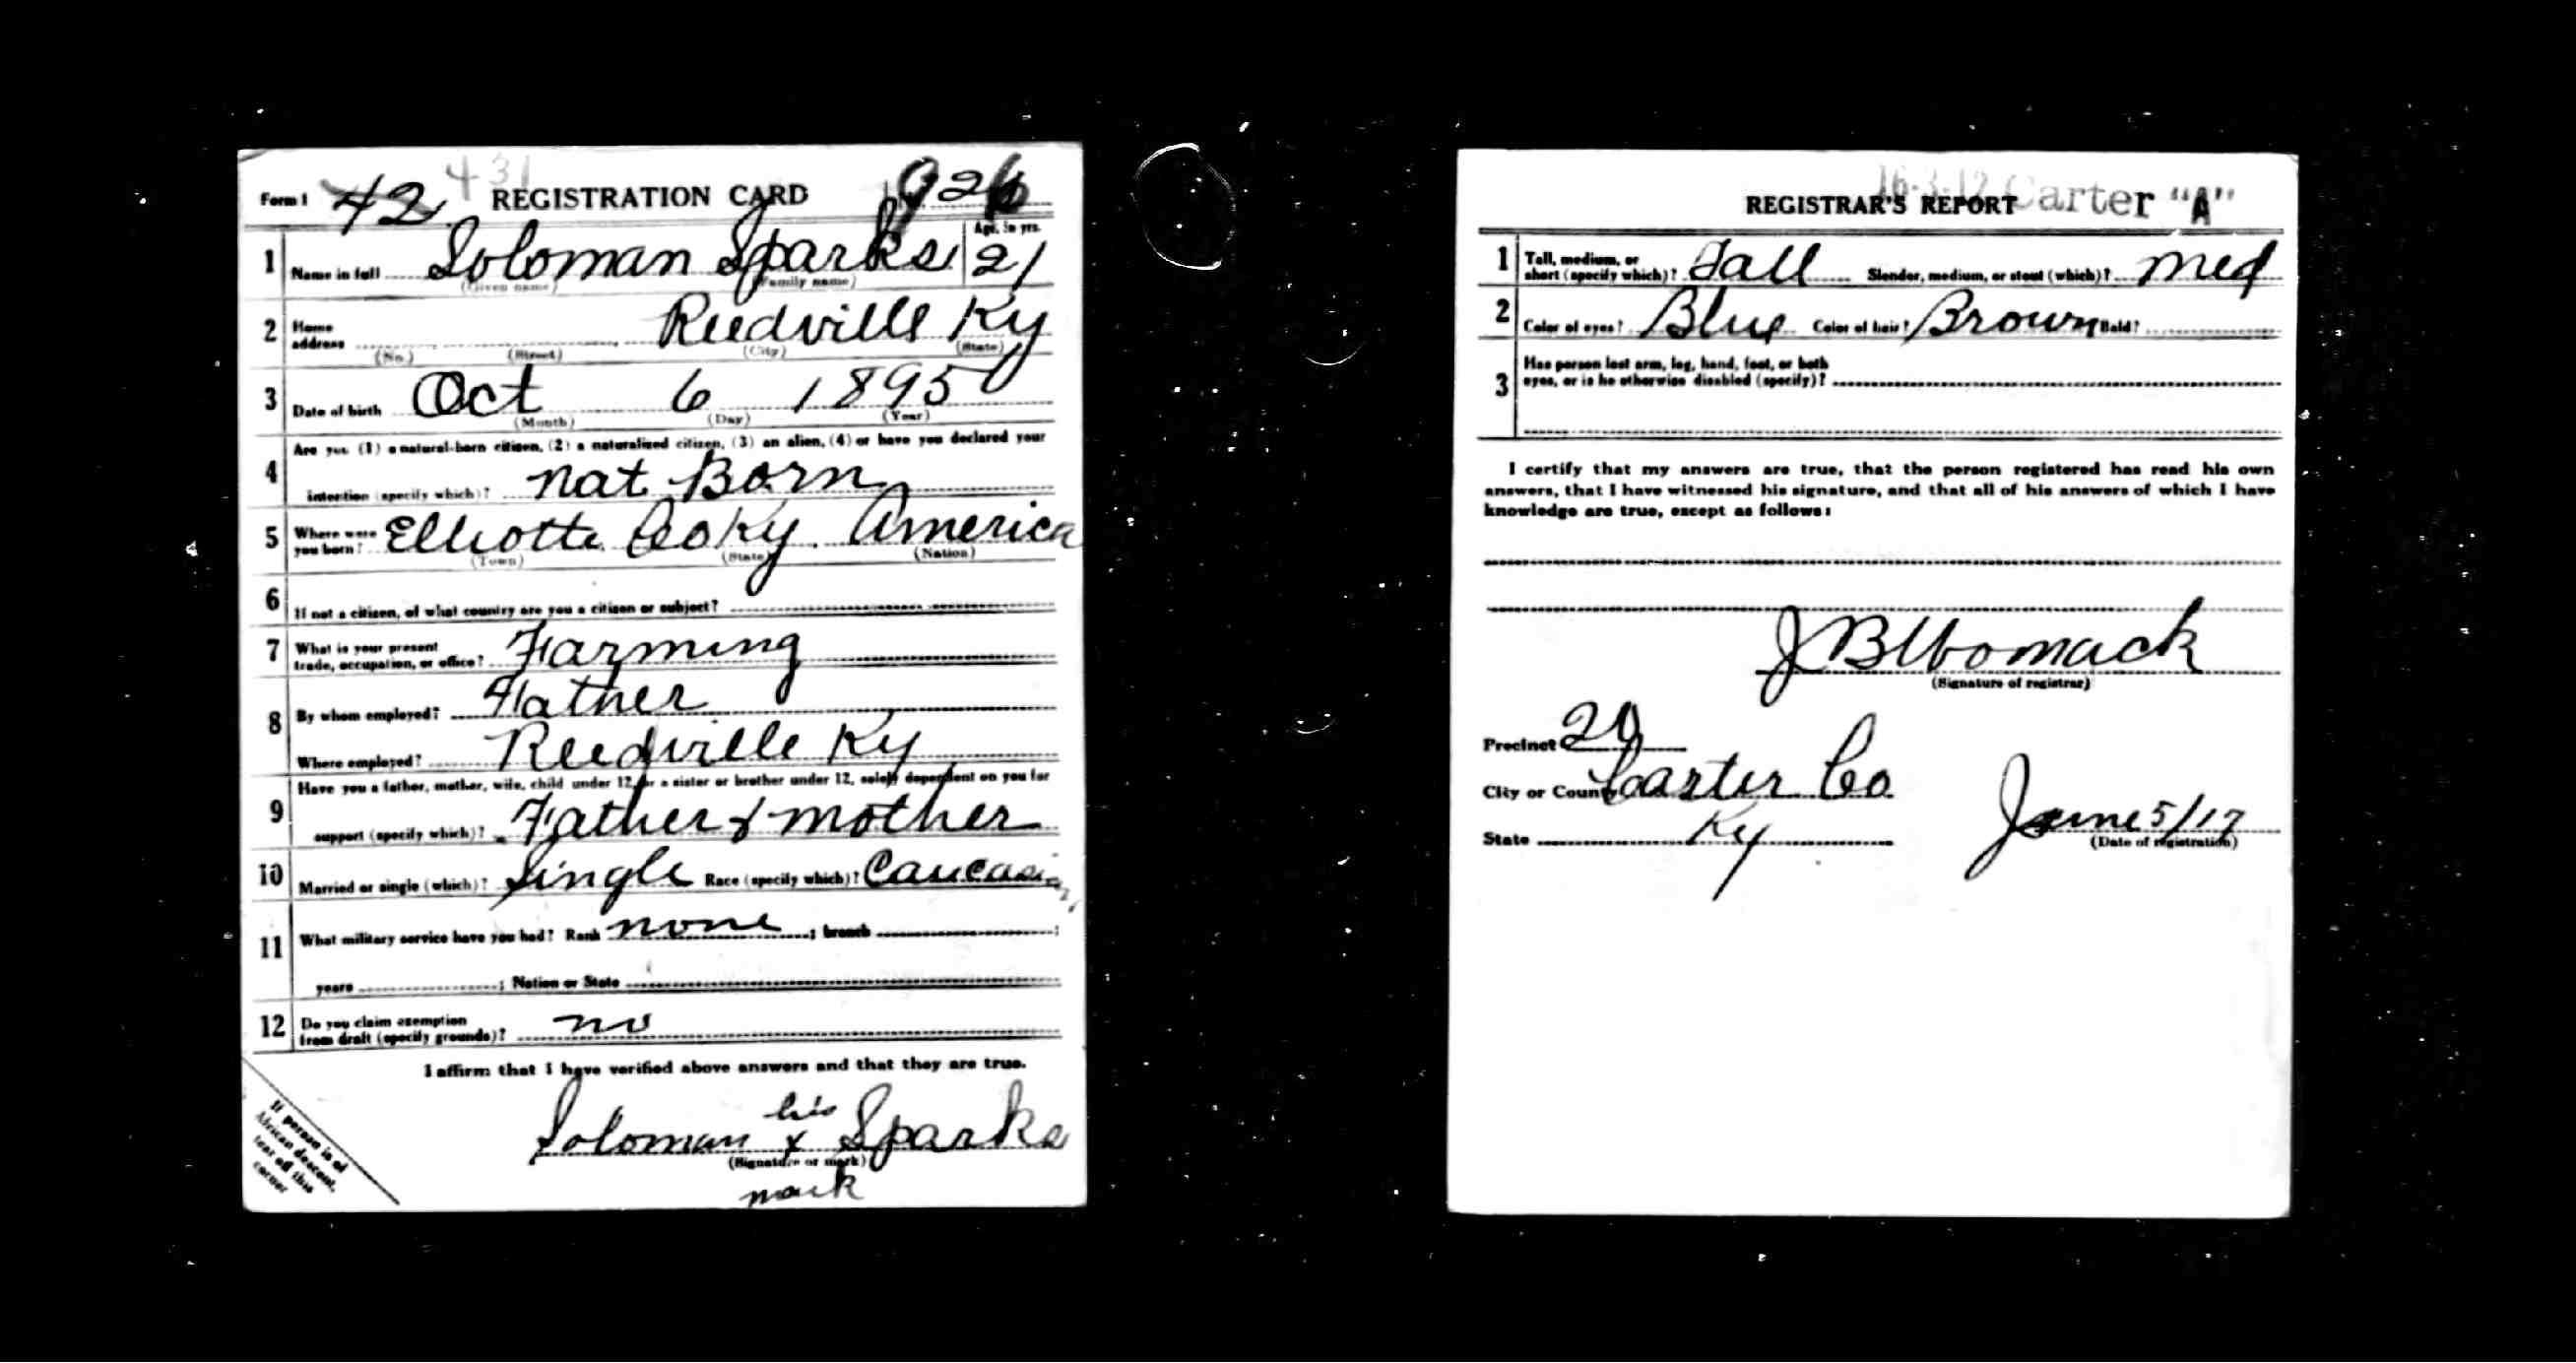 431
Form 1 42 REGISTRATION CARD 926
1 Name in full Soloman Sparks Age, in yrs. 21
(Given name) (Family name)
2 Home address Reedville Ky
(No.) (Street) (City) (State)
3 Date of birth Oct 6 1895
(Month) (Day) (Year)
4 Are you (1) a natural-born citizen, (2) a naturalized citizen, (3) an alien, (4) or have you declared your
intention (specify which)? nat Born
5 Where were you born? Elliotte Co Ky. America
(Town) (State) (Nation)
6 If not a citizen, of what country are you a citizen or subject?
7 What is your present trade, occupation, or office? Farming
8 By whom employed? Father
Where employed? Reedville Ky
9 Have you a father, mother, wife, child under 12, or a sister or brother under 12, solely dependent on you for
support (specify which)? Father & mother
10 Married or single (which)? Single Race (specify which)? Caucasian
11 What military service have you had? Rank none ; branch ;
years ; Nation or State
12 Do you claim exemption from draft (specify grounds)? no
I affirm that I have verified above answers and that they are true.
his
Soloman x Sparks
(Signature or mark)
mark
If person is of
African descent,
tear off this
corner
16-3-12 Carter "A"
REGISTRAR'S REPORT
1 Tall, medium, or short (specify which)? Tall Slender, medium, or stout (which)? Med
2 Color of eyes? Blue Color of hair? Brown Bald?
3 Has person lost arm, leg, hand, foot, or both
eyes, or is he otherwise disabled (specify)?
I certify that my answers are true, that the person registered has read his own
answers, that I have witnessed his signature, and that all of his answers of which I have
knowledge are true, except as follows:
J B Womack
(Signature of registrar)
Precinct 20
City or County Carter Co
State Ky
June 5/17
(Date of registration)